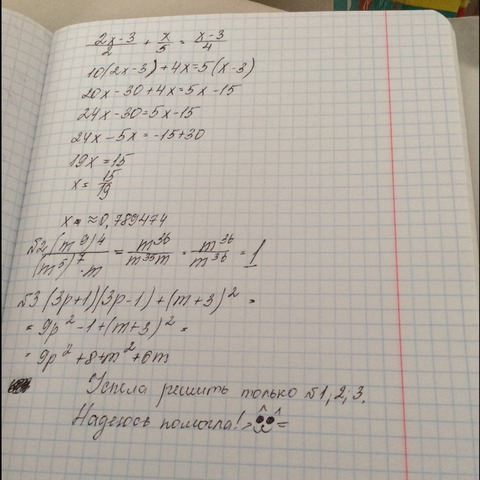 (2x-3)/2 + x/5 = (x-3)/4
10(2x-3)+4x=5(x-3)
20x-30+4x=5x-15
24x-30=5x-15
24x-5x=-15+30
19x=15
x= 15/19
x=≈0,789474
№2 (m⁹)4/(m⁵)⁷·m = m³⁶/m³⁵m = m³⁶/m³⁶ = 1
№3 (3p+1)(3p-1)+(m+3)² =
= 9p²-1+(m+3)² =
= 9p²+8+m²+6m
Успела решить только №1,2,3.
Надеюсь помогла!